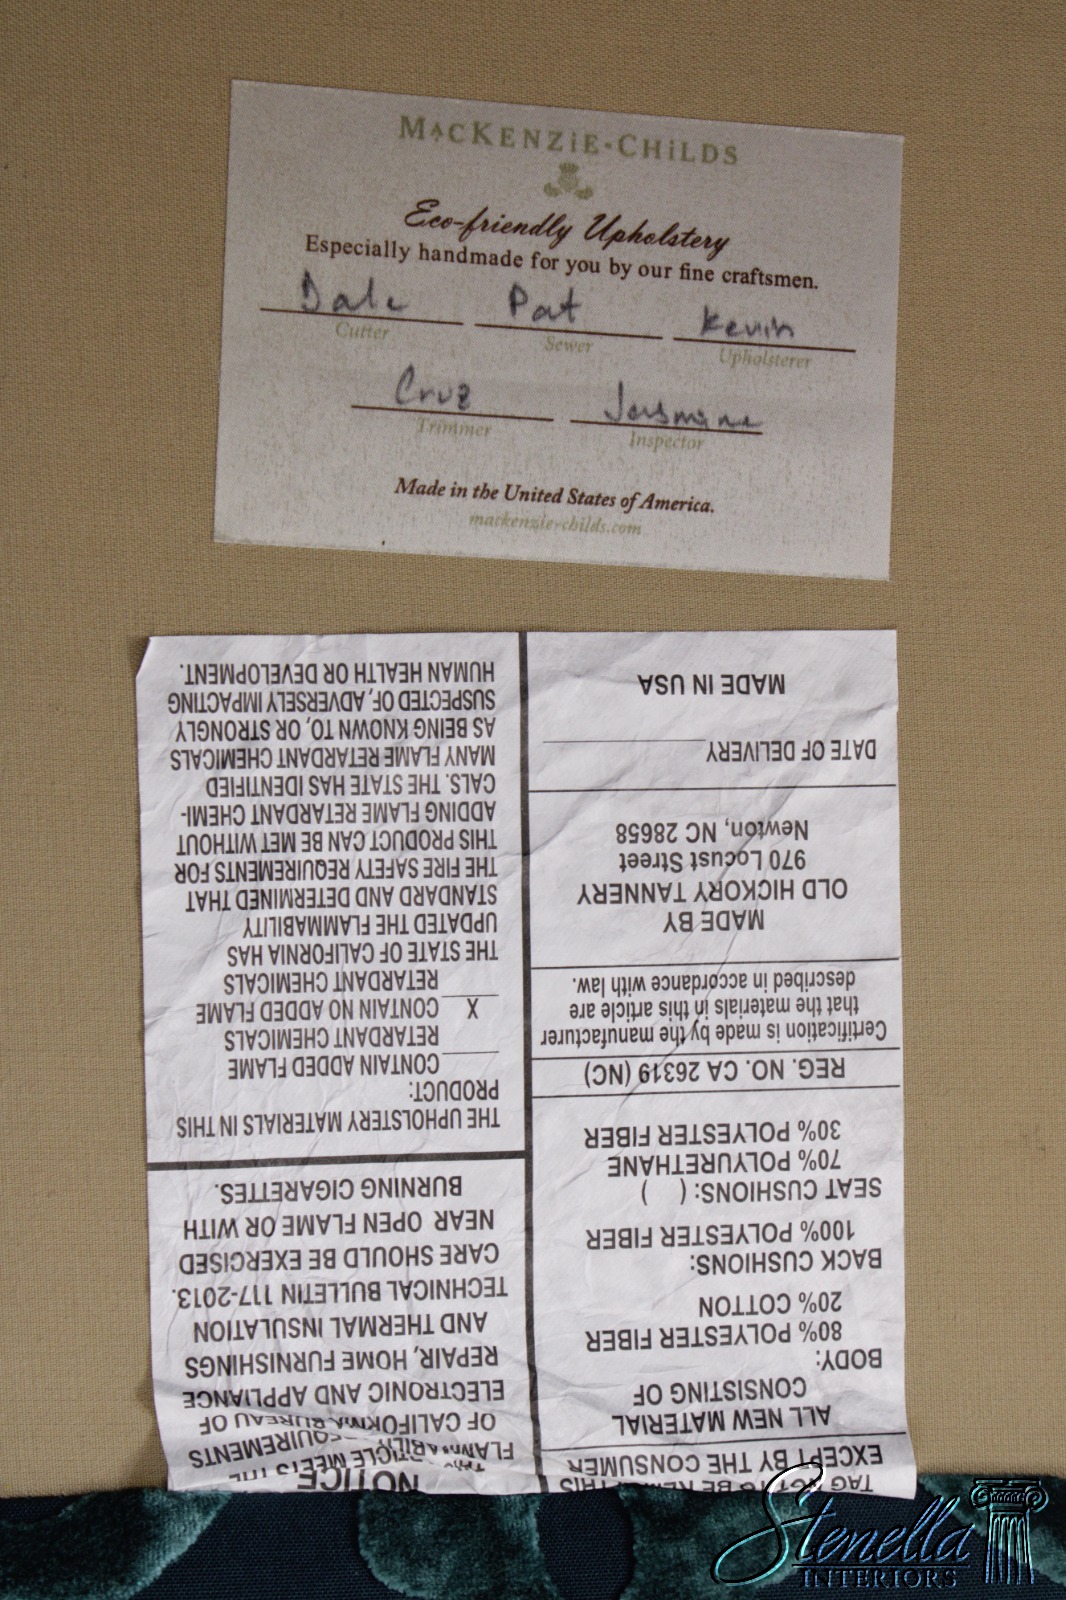 MACKENZiE-CHiLDS
Eco-friendly Upholstery
Especially handmade for you by our fine craftsmen.
Dale Pat Kevin
Cutter Sewer Upholsterer
Cruz Jasmine
Trimmer Inspector
Made in the United States of America.
mackenzie-childs.com
EXCEPT BY THE CONSUMER
ALL NEW MATERIAL
CONSISTING OF
BODY:
80% POLYESTER FIBER
20% COTTON
BACK CUSHIONS:
100% POLYESTER FIBER
SEAT CUSHIONS: ( )
70% POLYURETHANE
30% POLYESTER FIBER
REG. NO. CA 26319 (NC)
Certification is made by the manufacturer
that the materials in this article are
described in accordance with law.
MADE BY
OLD HICKORY TANNERY
970 Locust Street
Newton, NC 28658
DATE OF DELIVERY
MADE IN USA
NOTICE
ARTICLE MEETS THE
OF CALIFORNIA BUREAU OF
ELECTRONIC AND APPLIANCE
REPAIR, HOME FURNISHINGS
AND THERMAL INSULATION
TECHNICAL BULLETIN 117-2013.
CARE SHOULD BE EXERCISED
NEAR OPEN FLAME OR WITH
BURNING CIGARETTES.
THE UPHOLSTERY MATERIALS IN THIS
PRODUCT:
CONTAIN ADDED FLAME
RETARDANT CHEMICALS
X CONTAIN NO ADDED FLAME
RETARDANT CHEMICALS
THE STATE OF CALIFORNIA HAS
UPDATED THE FLAMMABILITY
STANDARD AND DETERMINED THAT
THE FIRE SAFETY REQUIREMENTS FOR
THIS PRODUCT CAN BE MET WITHOUT
ADDING FLAME RETARDANT CHEMI-
CALS. THE STATE HAS IDENTIFIED
MANY FLAME RETARDANT CHEMICALS
AS BEING KNOWN TO, OR STRONGLY
SUSPECTED OF, ADVERSELY IMPACTING
HUMAN HEALTH OR DEVELOPMENT.
Stenella
INTERIORS